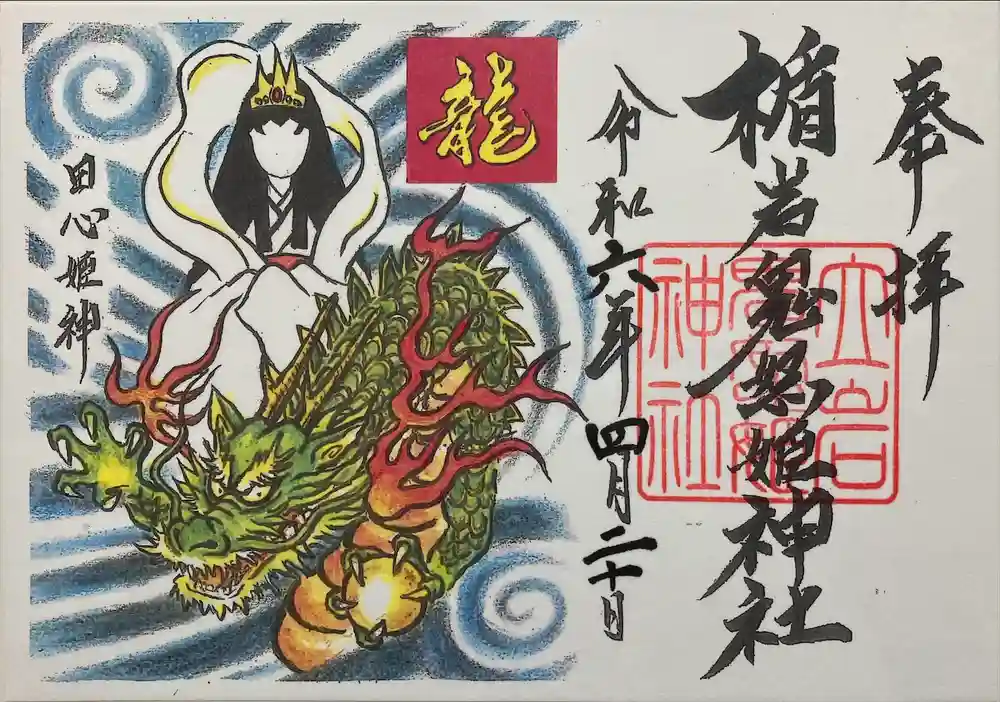 奉拝
楯岩鬼怒姫神社
立岩
神社
令和六年四月二十日
龍
田心姫神